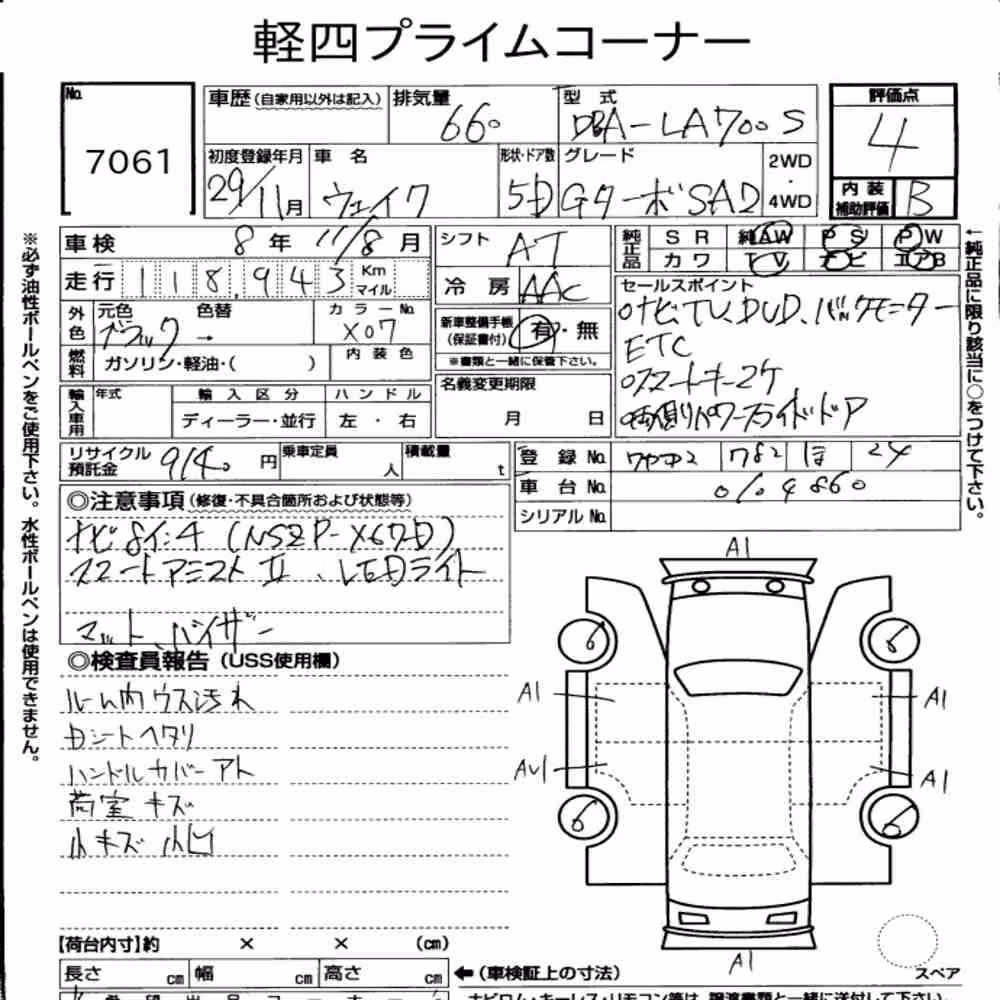 軽四プライムコーナー
No. 7061
車歴 (自家用以外は記入)
排気量 660
型式 DBA-LA700S
評価点 4
初度登録年月 29/11月
車名 ウェイク
形状・ドア数 5D
グレード GターボSAⅡ
2WD・4WD
内装補助評価 B
車検 8年 11/8月
シフト AT
純正品 SR 純AW PS PW
カワ TV ナビ エアB
走行 118,943 Km マイル
冷房 AAC
セールスポイント
○ナビ、TV、DVD、バックモニター
ETC
○スマートキー2ケ
○両側パワースライドドア
外色 元色 ブラック → 色替
カラーNo. X07
新車整備手帳(保証書付) 有・無
※書類と一緒に保管下さい。
燃料 ガソリン・軽油・( )
内装色
名義変更期限 月 日
輸入車用 年式
輸入区分 ディーラー・並行
ハンドル 左・右
リサイクル預託金 9140円
乗車定員 人
積載量 t
登録No. 782 ほ 24
車台No. 0109860
シリアルNo.
◎注意事項 (修復・不具合箇所および状態等)
ナビ8インチ (NSZP-X67D)
スマートアシストⅡ、LEDライト
マット、バイザー
◎検査員報告 (USS使用欄)
ルーム内ウス汚れ
Dシートヘタリ
ハンドルカバーアト
荷室キズ
小キズ 小凹
A1
6 6
A1 A1
AU1 A1
6 6
A1
スペア
【荷台内寸】約 × × (cm)
長さ cm 幅 cm 高さ cm
←(車検証上の寸法)
※必ず油性ボールペンをご使用下さい。水性ボールペンは使用できません。
←純正品に限り該当に○をつけて下さい。